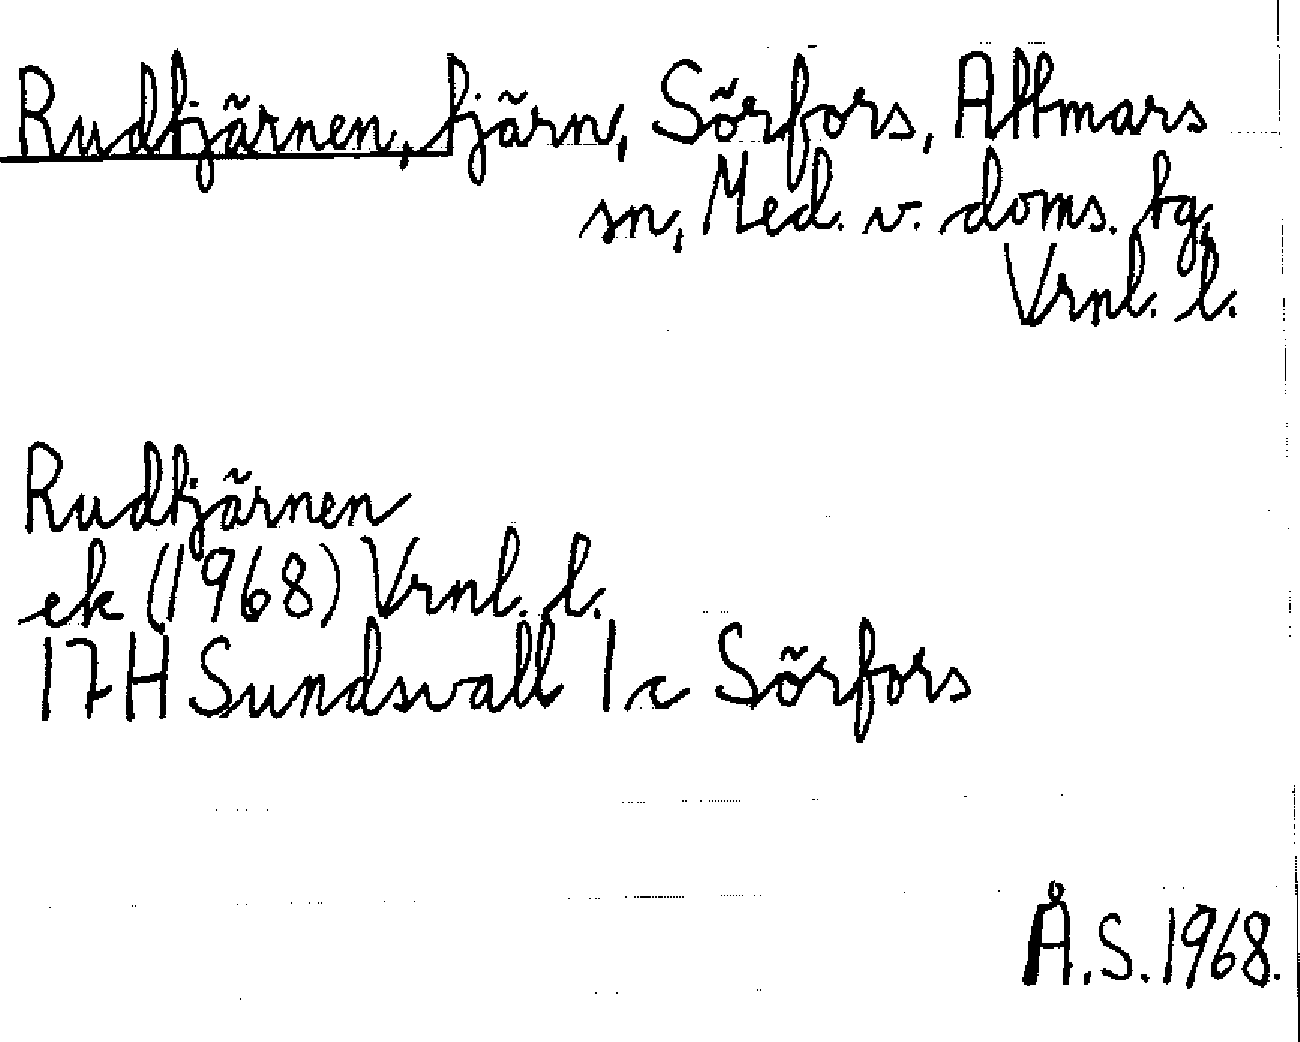 Rudtjärnen, tjärn, Sörfors, Attmars
sn, Med. v. doms. tg,
Vrnl. l.
Rudtjärnen
ek (1968) Vrnl. l.
17H Sundsvall 1c Sörfors
Å.S. 1968.